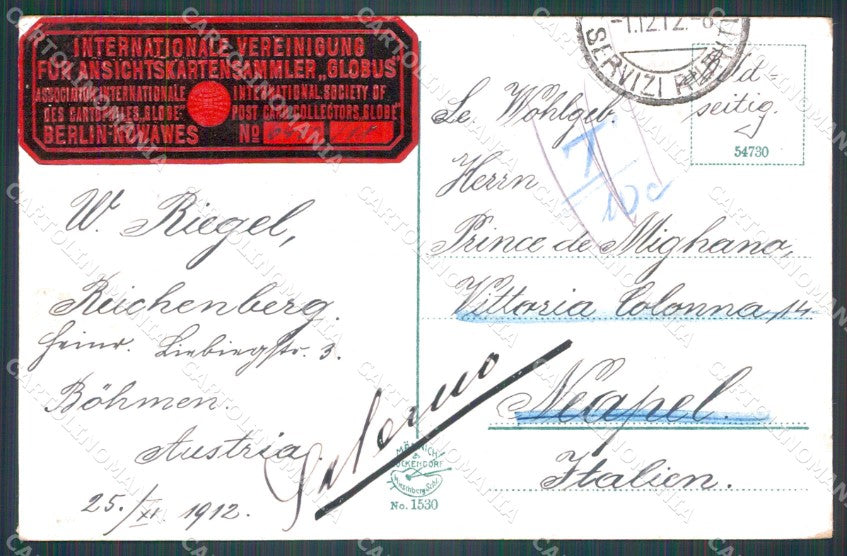 INTERNATIONALE VEREINIGUNG
FÜR ANSICHTSKARTENSAMMLER „GLOBUS"
ASSOCIATION INTERNATIONALE
DES CARTOPHILES „GLOBE"
INTERNATIONAL SOCIETY OF
POST CARD COLLECTORS „GLOBE"
BERLIN-NOWAWES
No
-1.12.12.-8
SERVIZI
Bild-
seitig.
54730
W. Riegel,
Reichenberg.
Heinr. Liebiegstr. 3.
Böhmen
Austria
25./XI. 1912.
Se. Wohlgeb.
Herrn
T
10 c
Prince de Mighano,
Vittoria Colonna, 14
Neapel.
Italien.
Salerno
No. 1530
CARTOLINOMANIA